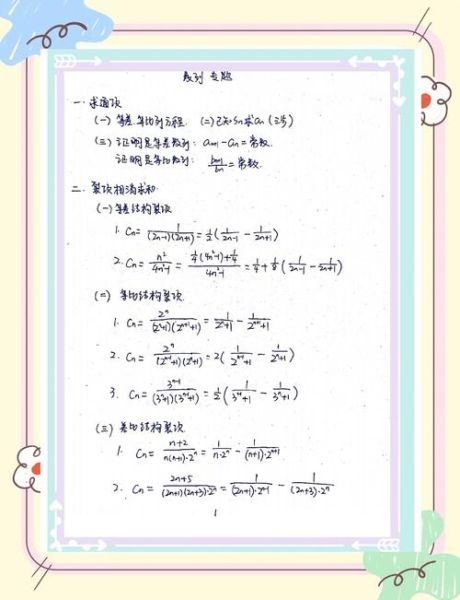 数列 专题
一. 求通项
(一) 等差.等比列方程. (二) 已知Sn求an (三步)
(三) 证明是等差数列: an+1 - an = 常数.
证明是等比数列: bn+1/bn = 常数.
二. 裂项相消求和.
(一) 等差结构裂项
1. Cn = 1/((2n-1)(2n+1)) = 1/2(1/(2n-1) - 1/(2n+1))
2. Cn = n²/(4n²-1) = (1/4(4n²-1)+1/4)/(4n²-1) = 1/4 + 1/8(1/(2n-1) - 1/(2n+1))
(二) 等比结构裂项.
1. Cn = 2ⁿ/((2ⁿ+1)(2ⁿ⁺¹+1)) = 1/(2ⁿ+1) - 1/(2ⁿ⁺¹+1)
2. Cn = 2ⁿ/((2ⁿ⁻¹+1)(2ⁿ+1)) = 2(1/(2ⁿ⁻¹+1) - 1/(2ⁿ+1))
3. Cn = 3ⁿ⁻¹/((3ⁿ+1)(3ⁿ⁻¹+1)) = 1/2(1/(3ⁿ⁻¹+1) - 1/(3ⁿ+1))
(三) 差比结构裂项
1. Cn = (n+2)/(n(n+1)·2ⁿ) = 1/(n·2ⁿ⁻¹) - 1/((n+1)·2ⁿ)
2. Cn = (2n+5)/((2n+1)(2n+3)·2ⁿ) = 1/((2n+1)·2ⁿ⁻¹) - 1/((2n+3)·2ⁿ)
1